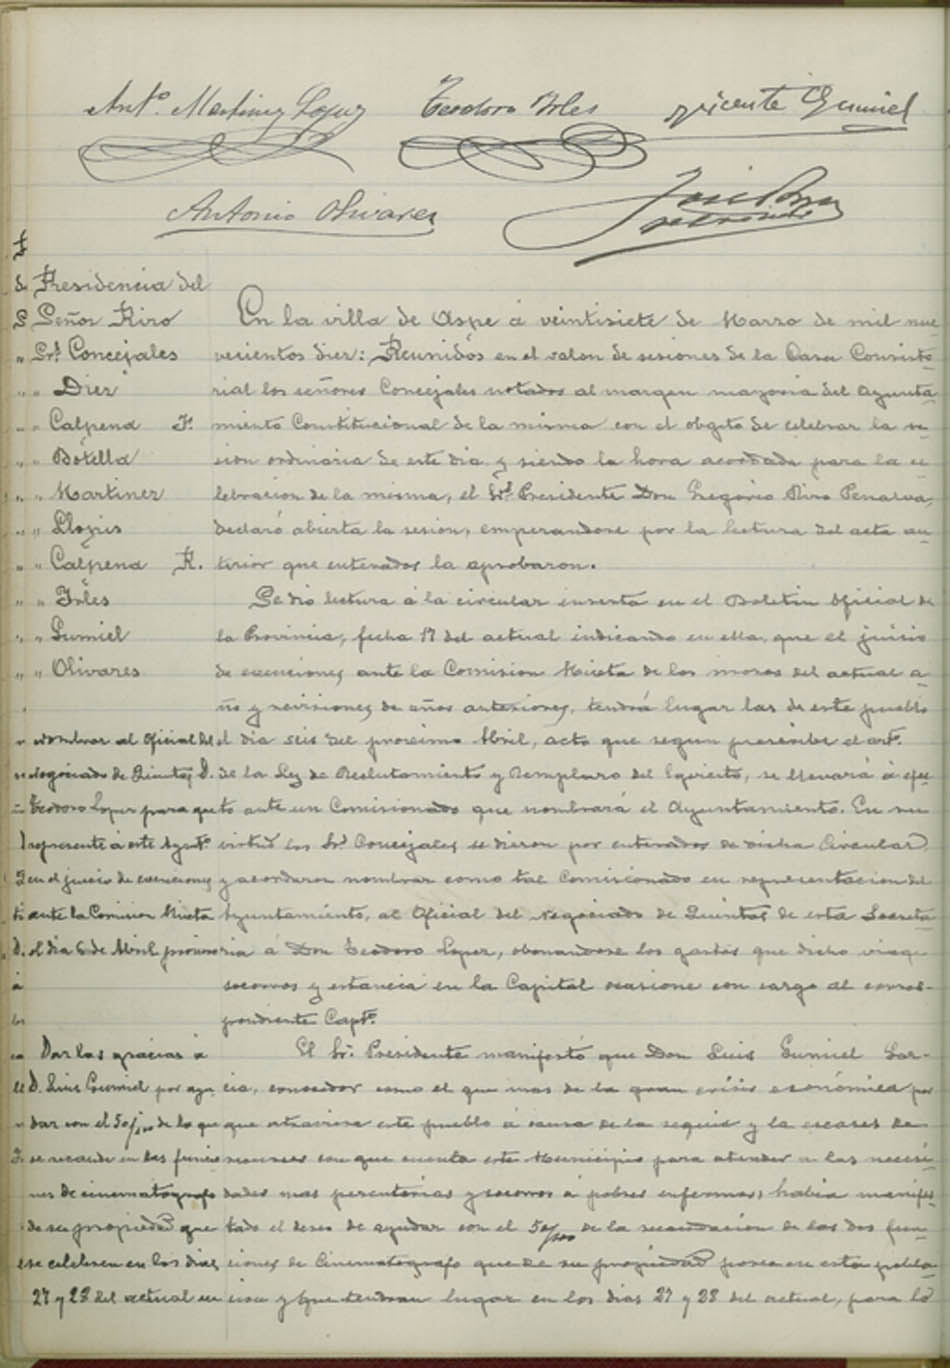 Antº Martinez Lopez Teodoro Irles Vicente Gumiel
Antonio Olivares
Presidencia del
Señor Piro
Sres Concejales
" " Diez
" " Calpena F.
" " Botella
" " Martinez
" " Llopis
" " Calpena R.
" " Irles
" " Gumiel
" " Olivares
En la villa de Aspe á veintisiete de Marzo de mil nue
vecientos diez: Reunidos en el salon de sesiones de la Casa Consisto
rial los señores Concejales notados al margen mayoria del Ayunta
miento Constitucional de la misma con el obgeto de celebrar la se
sion ordinaria de este dia y siendo la hora acordada para la ce
lebracion de la misma, el Sr. Presidente Don Gregorio Piro Penalva,
declaró abierta la sesion, empezandose por la lectura del acta an
terior que enterados la aprobaron.
Se dió lectura á la circular inserta en el Boletin Oficial de
la Provincia, fecha 17 del actual indicando en ella, que el juicio
de exenciones ante la Comision Mixta de los mozos del actual a
ño y revisiones de años anteriores, tendrá lugar las de este pueblo
el dia seis del proximo Abril, acto que segun prescribe el artº.
de la Ley de Reclutamiento y Remplazo del Egercito, se llevará á efec
to ante un Comisionado que nombrará el Ayuntamiento. En su
virtud los Sres Concejales se dieron por enterados de dicha Circular
y acordaron nombrar como tal Comisionado en representacion del
Ayuntamiento, al Oficial del Negociado de Quintas de esta Secreta
ria á Don Teodoro Lopez, abonandose los gastos que dicho viage
socorros y estancia en la Capital ocasione con cargo al corres-
pondiente Captº.
nombrar al Oficial del
negociado de Quintas D.
Teodoro Lopez para que
represente á este Ayuntº
en el juicio de exenciones
ante la Comision Mixta
el dia 6 de Abril proximo
El Sr. Presidente manifestó que Don Luis Gumiel Gar-
cia, conocedor como el que mas de la gran crisis económica por
que atraviesa este pueblo á causa de la sequia y la escases de
recursos con que cuenta este Municipio para atender a las necesi
dades mas perentorias y socorros á pobres enfermos, habia manifes
tado el deseo de ayudar con el 50/100 de la recaudacion de las dos fun
ciones de Cinematografo que de su propiedad posee en esta pobla
cion y que tendran lugar en los dias 27 y 28 del actual, para lo
Dar las gracias á
D. Luis Gumiel por ayu
dar con el 50/100 de lo que
se recaude en las funcio
nes de cinematografo
de su propiedad que
se celebren en los dias
27 y 28 del actual en